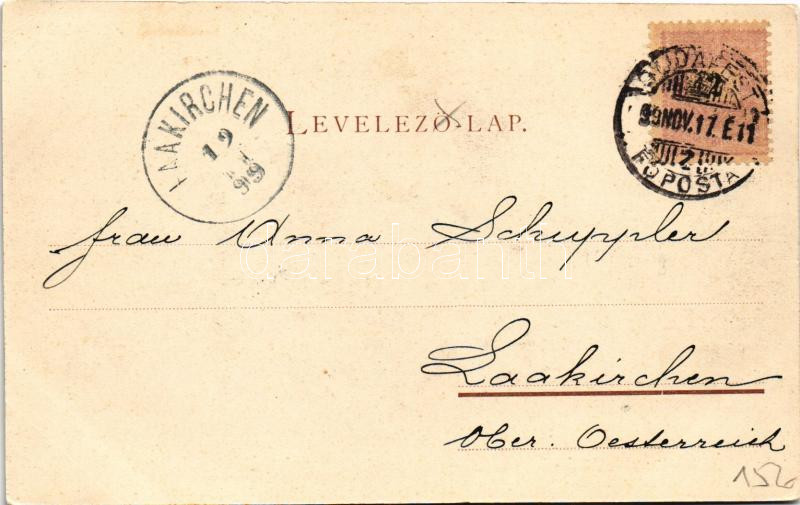 LEVELEZŐ-LAP.
LAAKIRCHEN
19
99
BUDAPEST
99 NOV. 17. E 11
FŐPOSTA
Frau Anna Schuppler
darabanth
Laakirchen
Ober. Oesterreich